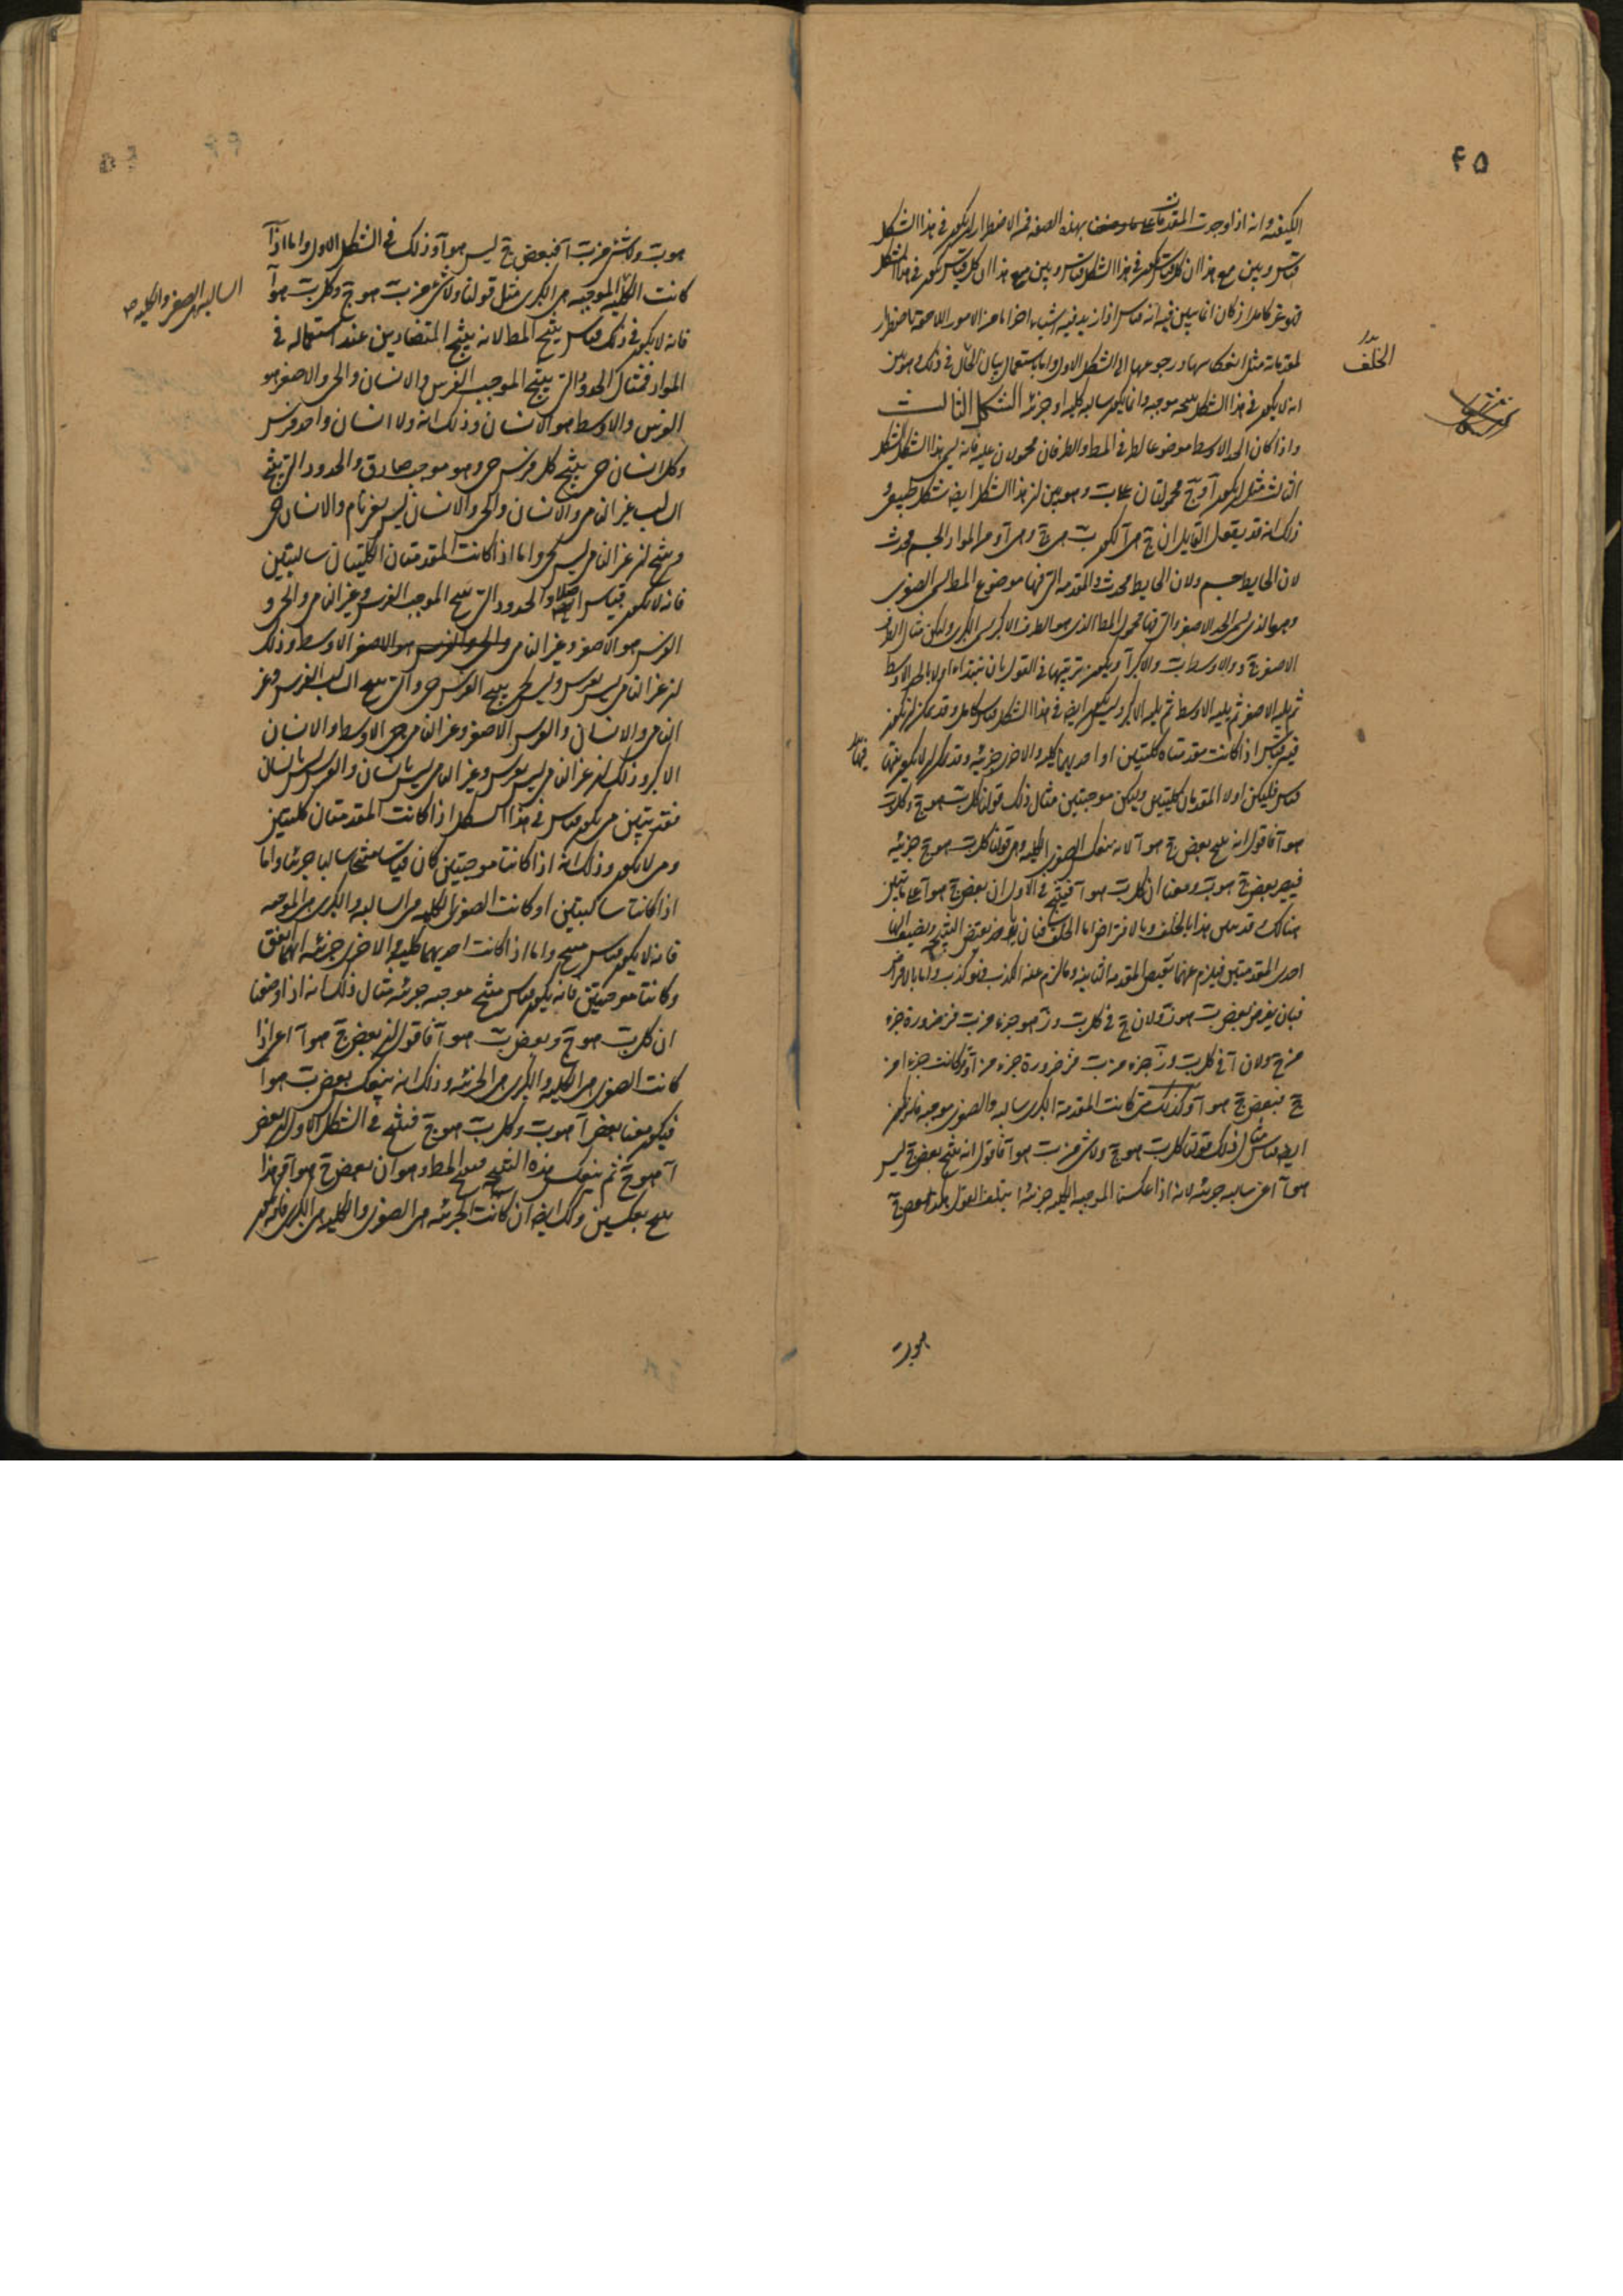 ٤٥
الكيفية وانه اذا وجدت المقدمات بهذه الصفة فمن الاضطرار ان يكون في هذا الشكل
قياس وبين مع هذا ان كل قياس يكون في هذا الشكل
فهو غير كامل اذ كان انما يبين فيه انه قياس اذا زيد فيه اشياء اخر اما من الامور اللاحقة باضطرار
لمقدماته مثل انعكاسها ورجوعها الى الشكل الاول واما باستعمال بيان الخلف في ذلك وهو بين
الخلف
انه لا يكون في هذا الشكل نتيجة موجبة وانما يكون سالبة كلية او جزئية الشكل الثالث
واذا كان الحد الاوسط موضوعا لطرفي المط والطرفان محمولان عليه فانه ليس هذا الشكل الشكل
الثالث مثل ان يكون آ و ج محمولتان على ب وهو بين ان هذا الشكل ايضا شكل طبيعي و
ذلك انه قد يقول القايل ان ج هي آ لكون ب هي ج وهي آ ومن المواد الجسم محدث
لان الحايط جسم ولان الحايط محدث والمقدمة التي فيها موضوع المط هي الصغرى
وهو الذي يسمى الحد الاصغر والتي فيها محمول المط الذي هو الطرف الاكبر هي الكبرى وليكن مثال الطرف
الاصغر ج والاوسط ب والاكبر آ ويكون ترتيبها في القول بان نبتدأ اولا بالحد الاوسط
ثم يليه الاصغر ثم يليه الاوسط ثم يليه الاكبر وليس يكون ايضا في هذا الشكل قياس كامل وقد يمكن ان يكون
فيه قياس اذا كانت مقدمتاه كليتين او احديهما كلية والاخرى جزئية وقد يمكن ان لا يكون فيها
قياس فليكن اولا المقدمتان كليتين وليكن موجبتين مثال ذلك قولنا كل ب هو ج وكل ب
هو آ فاقول انه ينتج بعض ج هو آ لانه ينعكس الصغرى الكلية وهي قولنا كل ب هو ج جزئية
فيصير بعض ج هو ب ومعنا ان كل ب هو آ فينتج في الاول ان بعض ج هو آ على ما تبين
هنالك وقد يبين هذا بالخلف وبالافتراض اما الخلف فبان ناخذ نقيض النتيجة ونضيف اليها
احدى المقدمتين فيلزم عنها نقيض المقدمة الثانية وما لزم عنه الكذب فهو كذب واما بالافتراض
فبان يفرض بعض ب هو ز ولان ج في كل ب و ز هو جزء من ب فز ضرورة جزء
من ج ولان آ في كل ب و ز جزء من ب فز ضرورة جزء من آ
ج فبعض ج هو آ وكذلك متى كانت المقدمة الكبرى سالبة والصغرى موجبة فانه يكون
ايضا قياس مثال ذلك قولنا كل ب هو ج ولا شي من ب هو آ فاقول انه ينتج بعض ج ليس
هو آ اعني سالبة جزئية لانه اذا عكسنا الموجبة الكلية جزئية ايتلف القول هكذا بعض ج
هو ب
هو ب ولا شي من ب آ فبعض ج ليس هو آ وذلك في الشكل الاول واما اذا
كانت الكلية الموجبة هي الكبرى مثل قولنا ولا شي من ب هو ج وكل ب هو آ
السالبة هي الصغرى والكلية
فانه لا يكون في ذلك قياس ينتج المط لانه ينتج المتضادين عند استعماله في
المواد فمثال الحدود التي ينتج الموجب الفرس والانسان والحي والاصغر هو
الفرس والاوسط هو الانسان وذلك انه ولا انسان واحد فرس
وكل انسان حي ينتج كل فرس حي وهو موجب صادق والحدود التي ينتج
السالب غير النامي والانسان والحي والانسان ليس بغير نام والانسان حي
وينتج ان غير النامي ليس بحي واما اذا كانت المقدمتان الكليتان سالبتين
فانه لا يكون قياس اصلا والحدود التي تنتج الموجب الفرس وغير النامي والحي و
الفرس هو الاصغر وغير النامي هو الاوسط وذلك
ان غير النامي ليس بفرس وليس بحي ينتج الفرس حي والتي تنتج السالب الفرس وغير
النامي والانسان والفرس الاصغر وغير النامي هي الاوسط والانسان
الاكبر وذلك ان غير النامي ليس بفرس وغير النامي ليس بانسان والفرس ليس بانسان
فقد تبين متى يكون قياس في هذا الشكل اذا كانت المقدمتان كليتين
ومتى لا يكون وذلك انه اذا كانتا موجبتين كان قياسا منتجا سالبا جزئيا واما
اذا كانتا سالبتين او كانت الصغرى الكلية هي السالبة والكبرى هي الموجبة
فانه لا يكون قياس منتج واما اذا كانت احديهما كلية والاخرى جزئية ايهما اتفق
وكانتا موجبتين فانه يكون قياس منتج موجبة جزئية مثال ذلك انه اذا وضعنا
ان كل ب هو ج وبعض ب هو آ فاقول ان بعض ج هو آ اعني اذا
كانت الصغرى هي الكلية والكبرى هي الجزئية وذلك انه ينعكس بعض ب هو آ
فيكون معنا بعض آ هو ب وكل ب هو ج فينتج في الشكل الاول ان بعض
آ هو ج ثم ينعكس هذه النتيجة فينتج المط وهو ان بعض ج هو آ فهذا
ينتج بعكسين وكذلك ايضا ان كانت الجزئية هي الصغرى والكلية هي الكبرى فانه يكون